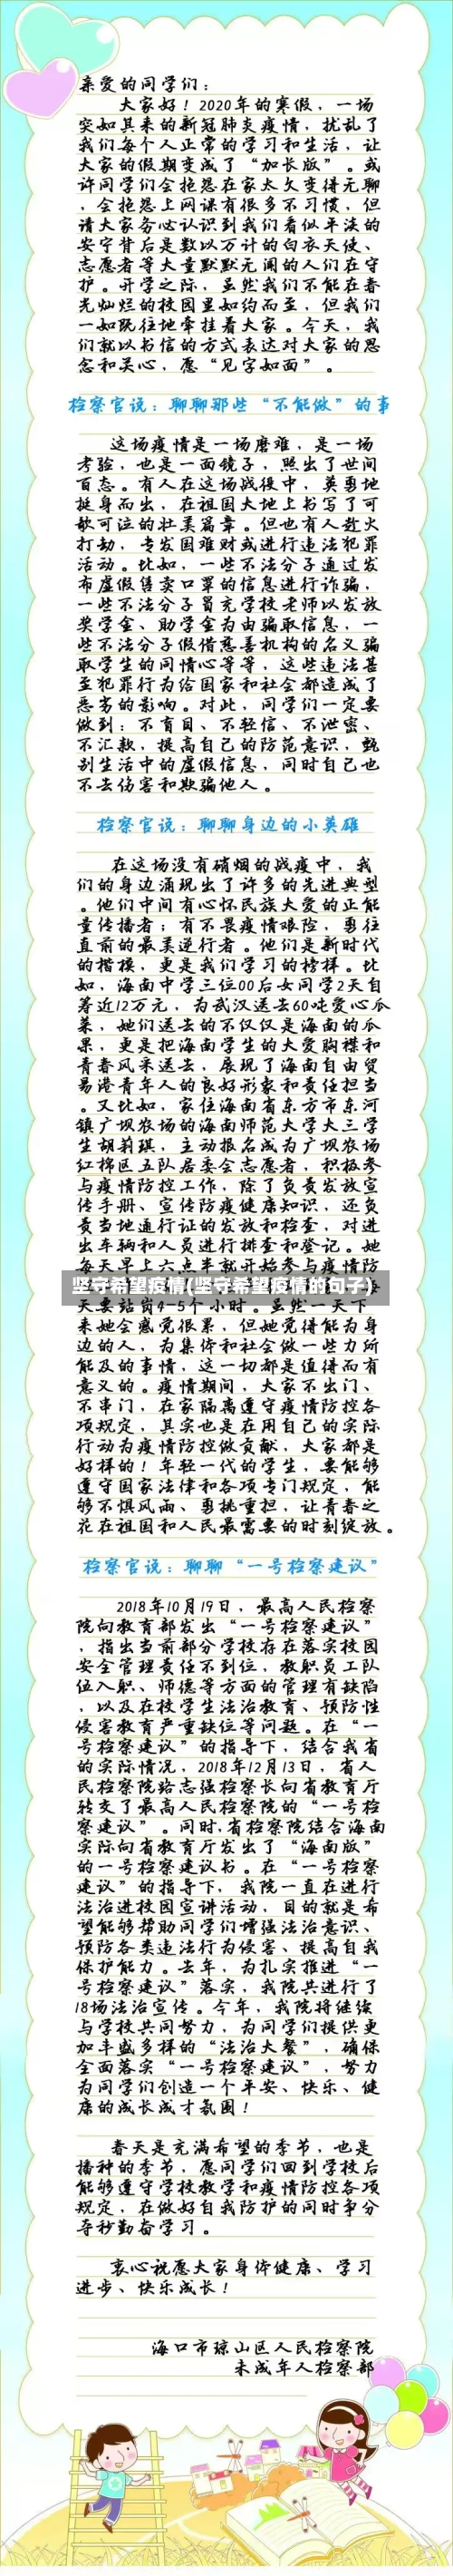 亲爱的同学们：
大家好！2020年的寒假，一场
突如其来的新冠肺炎疫情，扰乱了
我们每个人正常的学习和生活，让
大家的假期变成了“加长版”。或
许同学们会抱怨在家太久变得无聊
，会抱怨上网课有很多不习惯，但
请大家务必认识到我们看似平淡的
安宁背后是数以万计的白衣天使、
志愿者等大量默默无闻的人们在守
护。开学之际，虽然我们不能在春
光灿烂的校园里如约而至，但我们
一如既往地牵挂着大家。今天，我
们就以书信的方式表达对大家的思
念和关心，愿“见字如面”。
检察官说：聊聊那些“不能做”的事
这场疫情是一场磨难，是一场
考验，也是一面镜子，照出了世间
百态。有人在这场战役中，英勇地
挺身而出，在祖国大地上书写了可
歌可泣的壮美篇章。但也有人趁火
打劫，专发国难财或进行违法犯罪
活动。比如，一些不法分子通过发
布虚假售卖口罩的信息进行诈骗，
一些不法分子冒充学校老师以发放
奖学金、助学金为由骗取信息，一
些不法分子假借慈善机构的名义骗
取学生的同情心等等，这些违法甚
至犯罪行为给国家和社会都造成了
恶劣的影响。对此，同学们一定要
做到：不盲目、不轻信、不泄密、
不汇款，提高自己的防范意识，甄
别生活中的虚假信息，同时自己也
不去伤害和欺骗他人。
检察官说：聊聊身边的小英雄
在这场没有硝烟的战疫中，我
们的身边涌现出了许多的先进典型
。他们中间有心怀民族大爱的正能
量传播者；有不畏疫情艰险，勇往
直前的最美逆行者。他们是新时代
的楷模，更是我们学习的榜样。比
如，海南中学三位00后女同学2天自
筹近12万元，为武汉送去60吨爱心瓜
菜，她们送去的不仅仅是海南的瓜
果，更是把海南学生的大爱胸襟和
青春风采送去，展现了海南自由贸
易港青年人的良好形象和责任担当
。又比如，家住海南省东方市东河
镇广坝农场的海南师范大学大三学
生胡莉琪，主动报名成为广坝农场
红棉区五队居委会志愿者，积极参
与疫情防控工作，除了负责发放宣
传手册、宣传防疫健康知识，还负
责当地通行证的发放和检查，对进
出车辆和人员进行排查和登记。她
每天早上六点半就开始参与疫情防
坚守希望疫情(坚守希望疫情的句子)
天要站岗4-5个小时。虽然一天下
来她会感觉很累，但她觉得能为身
边的人，为集体和社会做一些力所
能及的事情，这一切都是值得而有
意义的。疫情期间，大家不出门、
不串门，在家隔离遵守疫情防控各
项规定，其实也是在用自己的实际
行动为疫情防控做贡献，大家都是
好样的！年轻一代的学生，要能够
遵守国家法律和各项专门规定，能
够不惧风雨、勇挑重担，让青春之
花在祖国和人民最需要的时刻绽放。
检察官说：聊聊“一号检察建议”
2018年10月19日，最高人民检察
院向教育部发出“一号检察建议”
，指出当前部分学校存在落实校园
安全管理责任不到位，教职员工队
伍入职、师德等方面的管理有缺陷
，以及在校学生法治教育、预防性
侵害教育严重缺位等问题。在“一
号检察建议”的指导下，结合我省
的实际情况，2018年12月13日，省人
民检察院路志强检察长向省教育厅
转交了最高人民检察院的“一号检
察建议”。同时，省检察院结合海南
实际向省教育厅发出了“海南版”
的一号检察建议书。在“一号检察
建议”的指导下，我院一直在进行
法治进校园宣讲活动，目的就是希
望能够帮助同学们增强法治意识、
预防各类违法行为侵害、提高自我
保护能力。去年，为扎实推进“一
号检察建议”落实，我院共进行了
18场法治宣传。今年，我院将继续
与学校共同努力，为同学们提供更
加丰盛多样的“法治大餐”，确保
全面落实“一号检察建议”，努力
为同学们创造一个平安、快乐、健
康的成长成才氛围！
春天是充满希望的季节，也是
播种的季节，愿同学们回到学校后
能够遵守学校教学和疫情防控各项
规定，在做好自我防护的同时争分
夺秒勤奋学习。
衷心祝愿大家身体健康、学习
进步、快乐成长！
海口市琼山区人民检察院
未成年人检察部